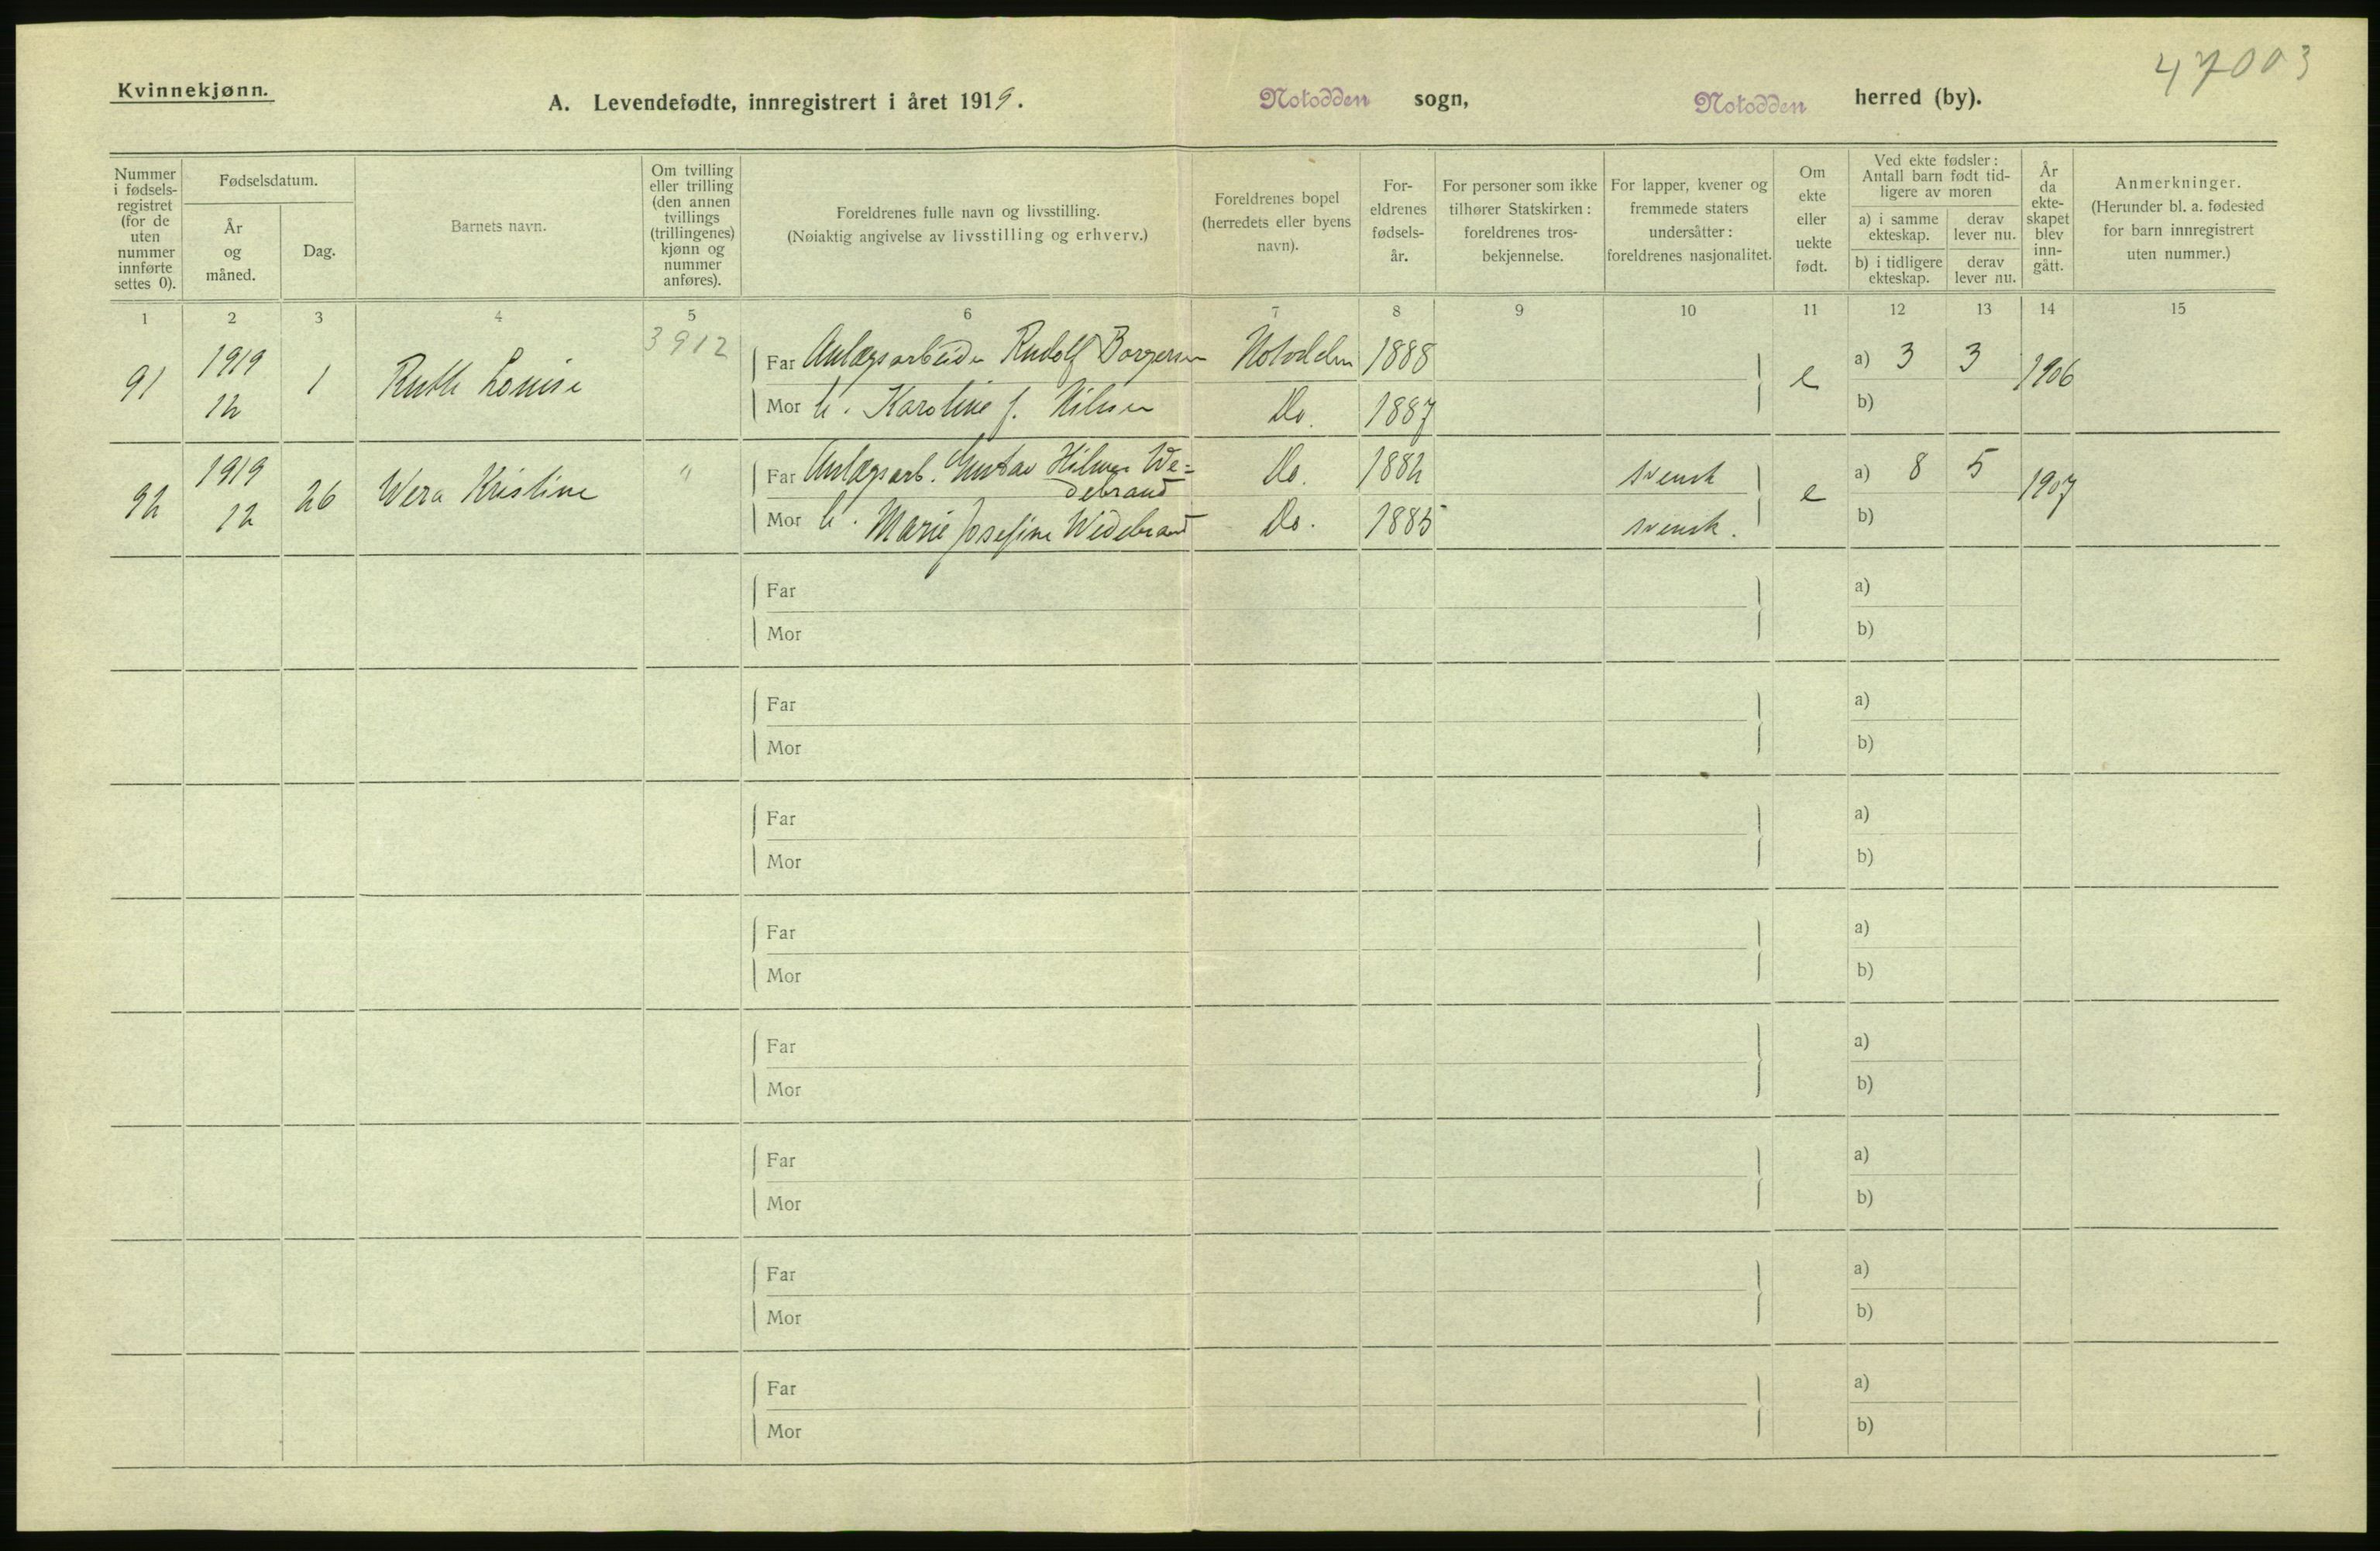 47003
Kvinnekjønn.
A. Levendefødte, innregistrert i året 1919.
Notodden sogn,
Notodden herred (by).
Nummer i fødsels-registret (for de uten nummer innførte settes 0).
Fødselsdatum.
År og måned.
Dag.
Barnets navn.
Om tvilling eller trilling (den annen tvillings (trillingenes) kjønn og nummer anføres).
Foreldrenes fulle navn og livsstilling.
(Nøiaktig angivelse av livsstilling og erhverv.)
Foreldrenes bopel (herredets eller byens navn).
For-eldrenes fødsels-år.
For personer som ikke tilhører Statskirken: foreldrenes tros-bekjennelse.
For lapper, kvener og fremmede staters undersåtter: foreldrenes nasjonalitet.
Om ekte eller uekte født.
Ved ekte fødsler: Antall barn født tid-ligere av moren
a) i samme ekteskap.
derav lever nu.
b) i tidligere ekteskap.
derav lever nu.
År da ekte-skapet blev inn-gått.
Anmerkninger.
(Herunder bl. a. fødested for barn innregistrert uten nummer.)
1 2 3 4 5 6 7 8 9 10 11 12 13 14 15
3912
91 1919 12 1 Ruth Louise
Far Anlægsarbeider Rudolf Borgersen Notodden 1888 e a) 3 3 1906
Mor h. Karoline f. Nilsen Do. 1887 b)
92 1919 12 26 Wera Kristine "
Far Anlægsarb. Gustav Hilmer We=
debrand Do. 1882 svensk e a) 8 5 1907
Mor h. Marie Josefine Wedebrand Do. 1885 svensk. b)
Far a)
Mor b)
Far a)
Mor b)
Far a)
Mor b)
Far a)
Mor b)
Far a)
Mor b)
Far a)
Mor b)
Far a)
Mor b)
Far a)
Mor b)